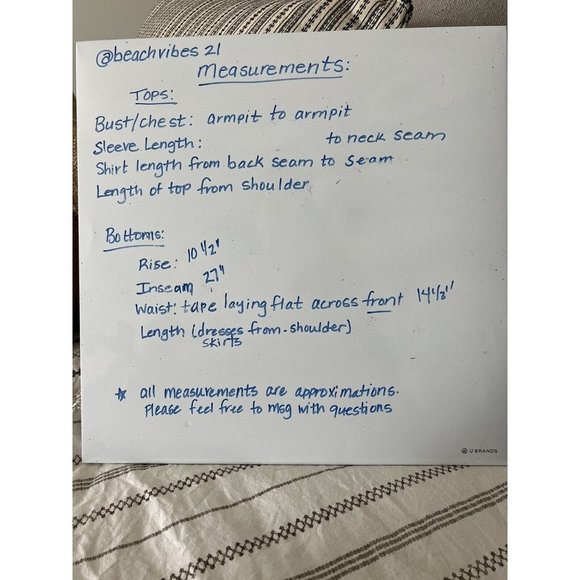 @beachvibes 21
Measurements:
Tops:
Bust/chest: armpit to armpit
Sleeve Length: to neck seam
Shirt length from back seam to seam
Length of top from shoulder
Bottoms:
Rise: 10 1/2"
Inseam 27"
Waist: tape laying flat across front 14 1/2"
Length (dresses from-shoulder)
skirts
☆ all measurements are approximations.
Please feel free to msg with questions
U BRANDS